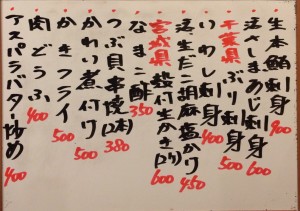 生本鮪刺身 900
活さしまあじ刺身 600
千葉県ぶり刺身 500
いわし刺身 400
活生だこ胡麻塩かけ 450
宮城県殻付生かき(2ヶ) 600
なまこ酢 350
つぶ貝串焼(2本) 380
かれい煮付け 500
かきフライ 500
肉どうふ 400
アスパラバター炒め 400